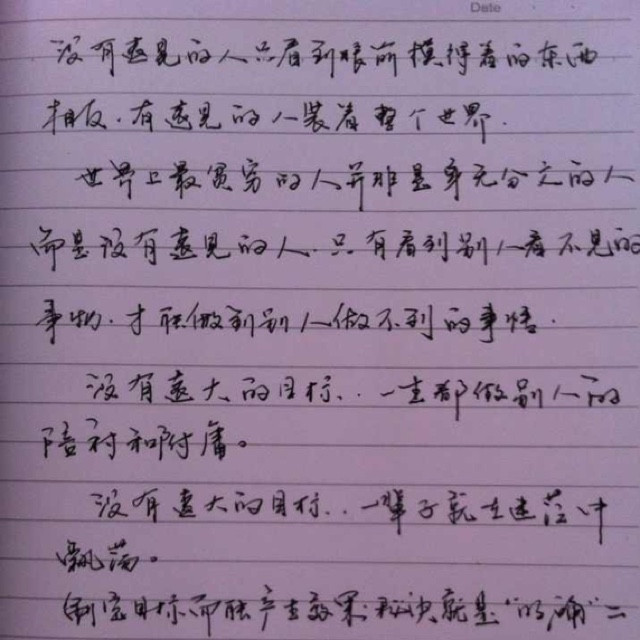 Date
没有遠見的人只看到眼前摸得着的东西
相反.有遠見的人装着整个世界.
世界上最贫穷的人并非是身无分文的人
而是没有遠見的人.只有看到别人看不見的
事物.才能做到别人做不到的事情.
没有遠大的目标..一生都做别人的
陪衬和附庸。
没有遠大的目标..一辈子就在迷茫中
飘荡。
制定目标而能产生效果.秘决就是“明确”二